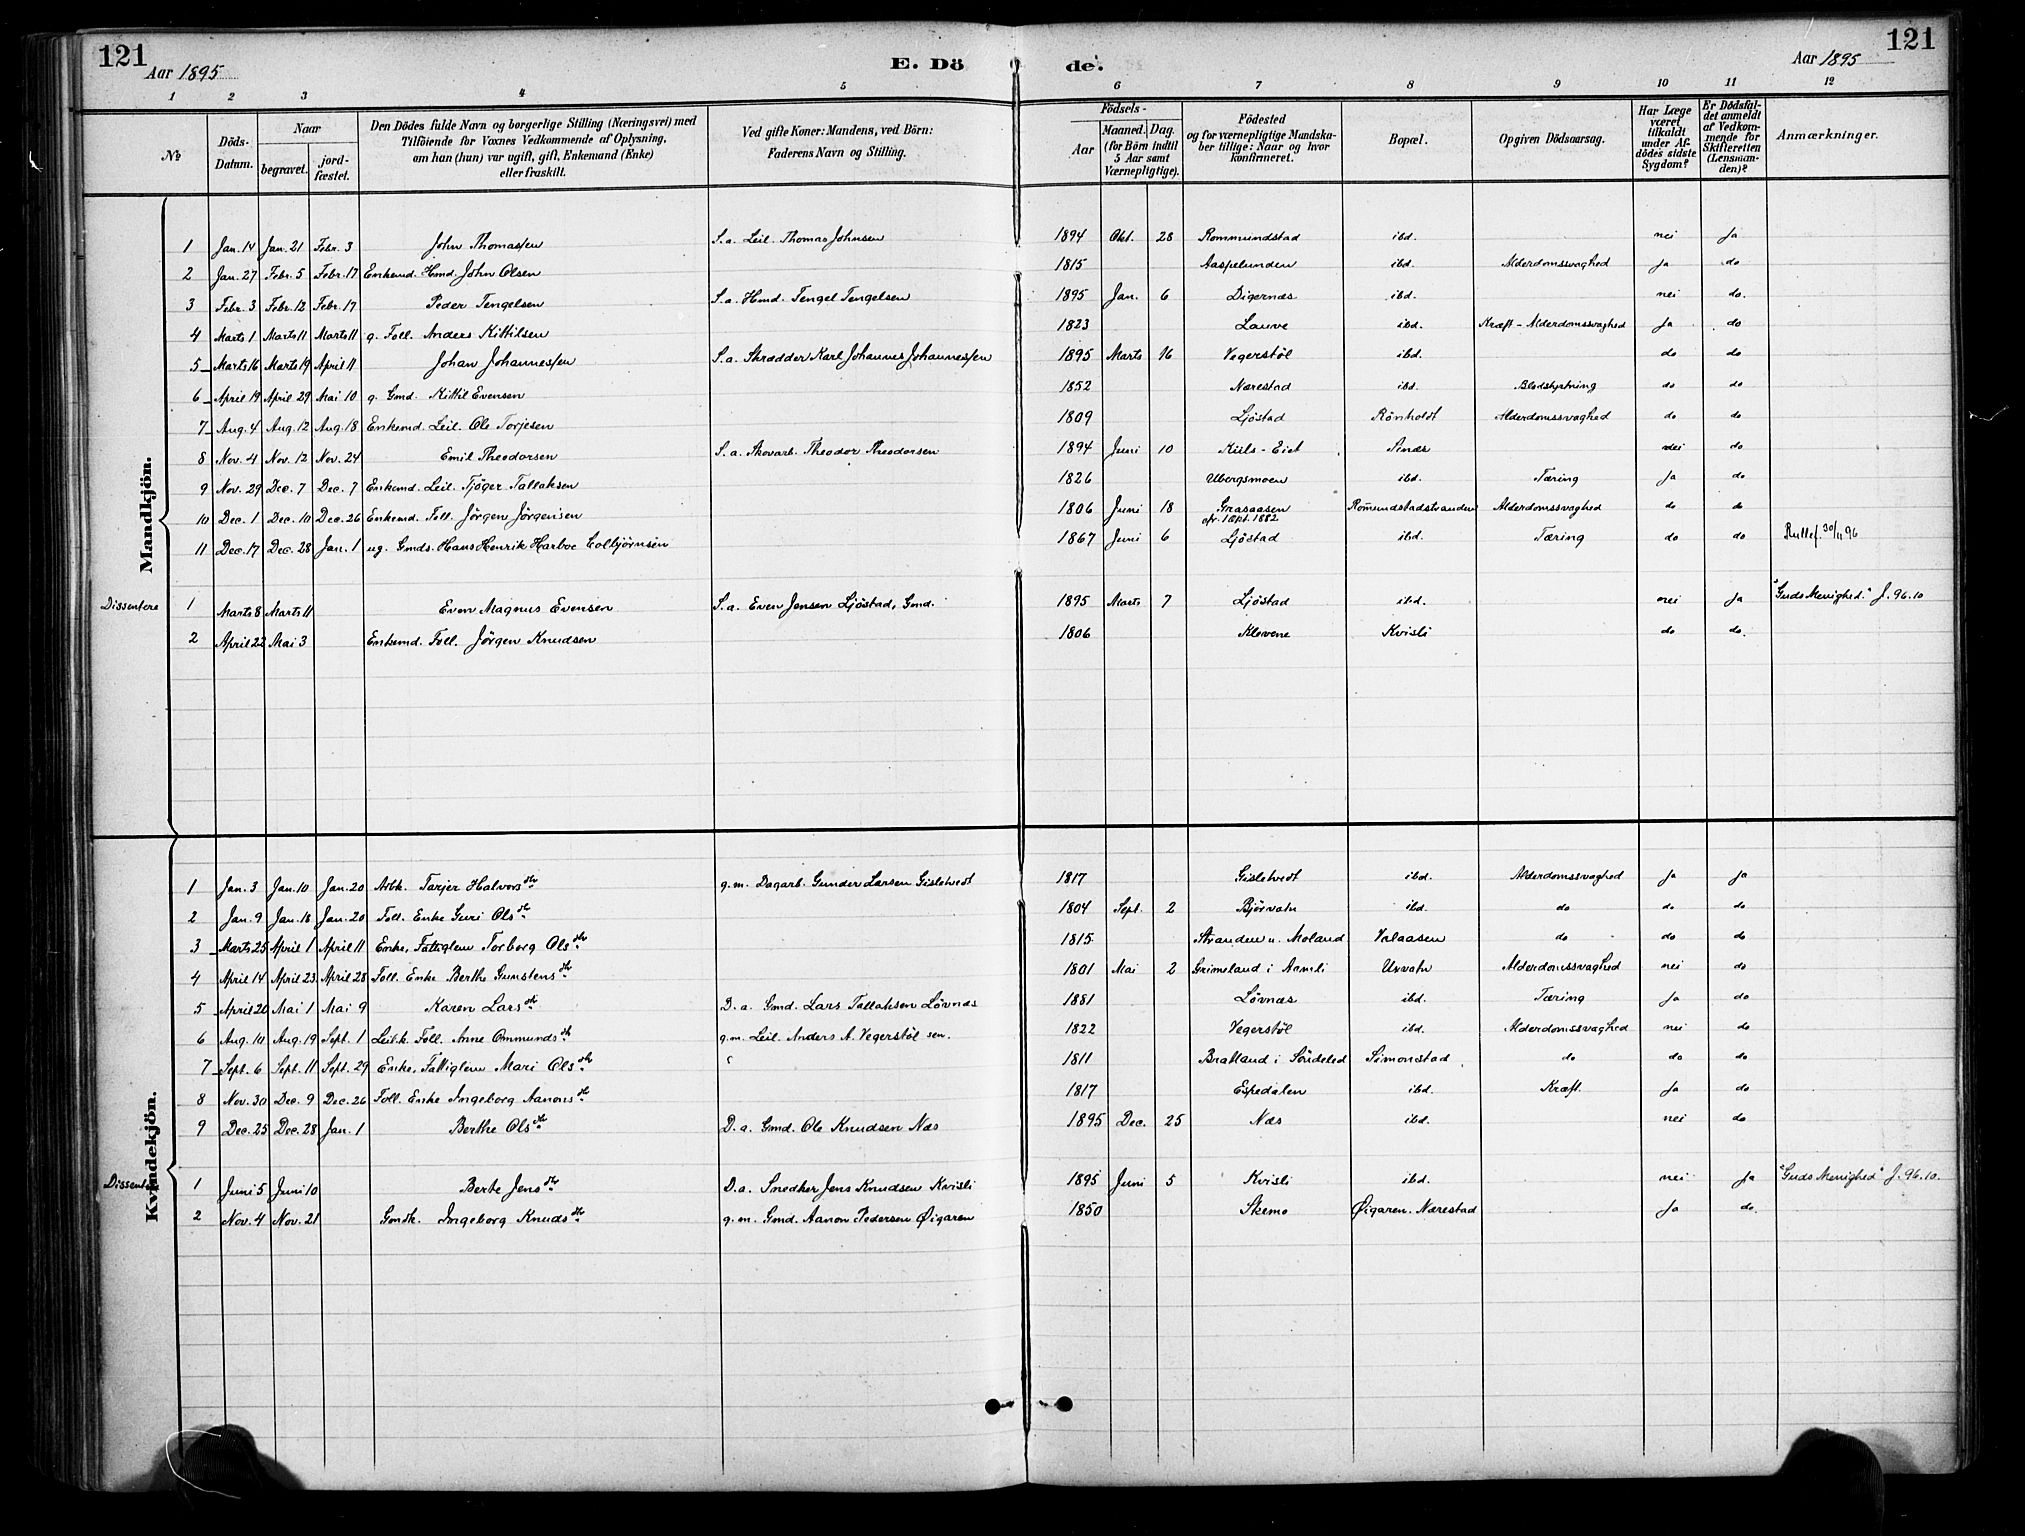 121
Aar 1895
E. Dö
de.
Aar 1895
121
1 2 3 4 5 6 7 8 9 10 11 12
No
Döds-Datum.
Naar
begravet.
jord-fæstet.
Den Dödes fulde Navn og borgerlige Stilling (Næringsvei) med
Tilföiende for Voxnes Vedkommende af Oplysning,
om han (hun) var ugift, gift, Enkemand (Enke)
eller fraskilt.
Ved gifte Koner: Mandens, ved Börn:
Faderens Navn og Stilling.
Födsels-
Aar
Maaned. Dag.
(for Börn indtil
5 Aar samt
Værnepligtige).
Födested
og for værnepligtige Mandska-
ber tillige: Naar og hvor
konfirmeret.
Bopæl.
Opgiven Dödsaarsag.
Har Læge
været
tilkaldt
under Af-
dödes sidste
Sygdom?
Er Dödsfal-
det anmeldt
af Vedkom-
mende for
Skifteretten
(Lensman-
den)?
Anmærkninger.
Mandkjön.
1 Jan. 14 Jan. 21 Febr. 3 John Thomassen S. a. Leil. Thomas Johnsen 1894 Okt. 28 Rommundstad ibd. nei ja
2 Jan. 27 Febr. 5 Febr. 17 Enkemd. Hmd. John Olsen 1815 Aaspelunden ibd. Alderdomssvaghed ja do
3 Febr. 3 Febr. 12 Febr. 17 Peder Tengelsen S. a. Hmd. Tengel Tengelsen 1895 Jan. 6 Digernæs ibd. nei do.
4 Marts 1 Marts 11 Marts 11 g. Foll. Anders Kittilsen 1823 Lauve ibd. Kræft - Alderdomssvaghed ja do
5 Marts 16 Marts 19 April 11 Johan Johannessen S. a. Skrædder Karl Johannes Johannessen 1895 Marts 16 Vegerstöl ibd. do do
6 April 19 April 29 Mai 10 g. Gmd. Kittil Evensen 1852 Nærestad ibd. Blodstyrtning do do
7 Aug. 4 Aug. 12 Aug. 18 Enkemd. Leil. Ole Torjesen 1809 Ljöstad Rönholdt Alderdomssvaghed do do
8 Nov. 4 Nov. 12 Nov. 24 Emil Theodorsen S. a. Skovarb. Theodor Theodorsen 1894 Juni 10 Kiils - Eiet Sinæs nei do
9 Nov. 29 Dec. 7 Dec. 7 Enkemd. Leil. Tjöger Tallaksen 1826 Ubergsmoen ibd. Tæring ja do
10 Dec. 1 Dec. 10 Dec. 26 Enkemd. Foll. Jörgen Jörgensen 1806 Juni 18 Grasaasen Romundstadstranden Alderdomssvaghed do do
11 Dec. 17 Dec. 28 Jan. 1 ug. Gmds. Hans Henrik Harboe Colbjörnsen 1867 Juni 6 cfr. 1 Okt. 1882 Ljöstad ibd. Tæring do do Rullef. 30/11 96
Dissentere 1 Marts 8 Marts 11 Even Magnus Evensen S. a. Even Jensen Ljöstad, Gmd. 1895 Marts 7 Ljöstad ibd. nei ja "Guds Menighed." J. 96.10
2 April 22 Mai 3 Enkemd. Foll. Jörgen Knudsen 1806 Klovene Kvisli do do.
Kvindekjön.
1 Jan. 3 Jan. 10 Jan. 20 Arbk. Tarjer Halvorsdtr. g. m. Dagarb. Gunder Larsen Gisletvedt 1817 Gisletvedt ibd. Alderdomssvaghed ja ja
2 Jan. 9 Jan. 18 Jan. 20 Foll. Enke Guri Olsdtr. 1804 Sept. 2 Björvatn ibd. do do do
3 Marts 25 April 1 April 11 Enke, Fattiglem Torborg Olsdtr. 1815 Stranden u. Moland Valaasen do do do
4 April 14 April 23 April 28 Foll. Enke Berthe Gunstensdtr. 1801 Mai 2 Grimeland i Aamli Uxvatn Alderdomssvaghed nei do
5 April 20 Mai 1 Mai 9 Karen Larsdtr. D. a. Gmd. Lars Tallaksen Lövnæs 1881 Lövnæs ibd. Tæring ja do
6 Aug. 10 Aug. 19 Sept. 1 Leilk. Foll. Anne Ommundsdtr. g. m. Leil. Anders A. Vegerstöl sen. 1822 Vegerstöl ibd. Alderdomssvaghed nei do
7 Sept. 6 Sept. 11 Sept. 29 Enke, Fattiglem Mari Olsdtr. 1811 Bratland i Söndeled Simonstad do do do
8 Nov. 30 Dec. 9 Dec. 26 Foll. Enke Ingeborg Aanonsdtr. 1817 Espedalen ibd. Kræft. ja do
9 Dec. 25 Dec. 28 Jan. 1 Berthe Olsdtr. D. a. Gmd. Ole Knudsen Næs 1895 Dec. 25 Næs ibd. nei do
Dissentere 1 Juni 5 Juni 10 Berte Jensdtr. D. a. Snedker Jens Knudsen Kvisli 1895 Juni 5 Kvisli ibd. nei ja "Guds Menighed" J. 96.10.
2 Nov. 4 Nov. 21 Gmdk. Ingeborg Knudsdtr. g. m. Gmd. Aanon Pedersen Øigaren 1850 Skemo Øigaren. Nærestad ja do.